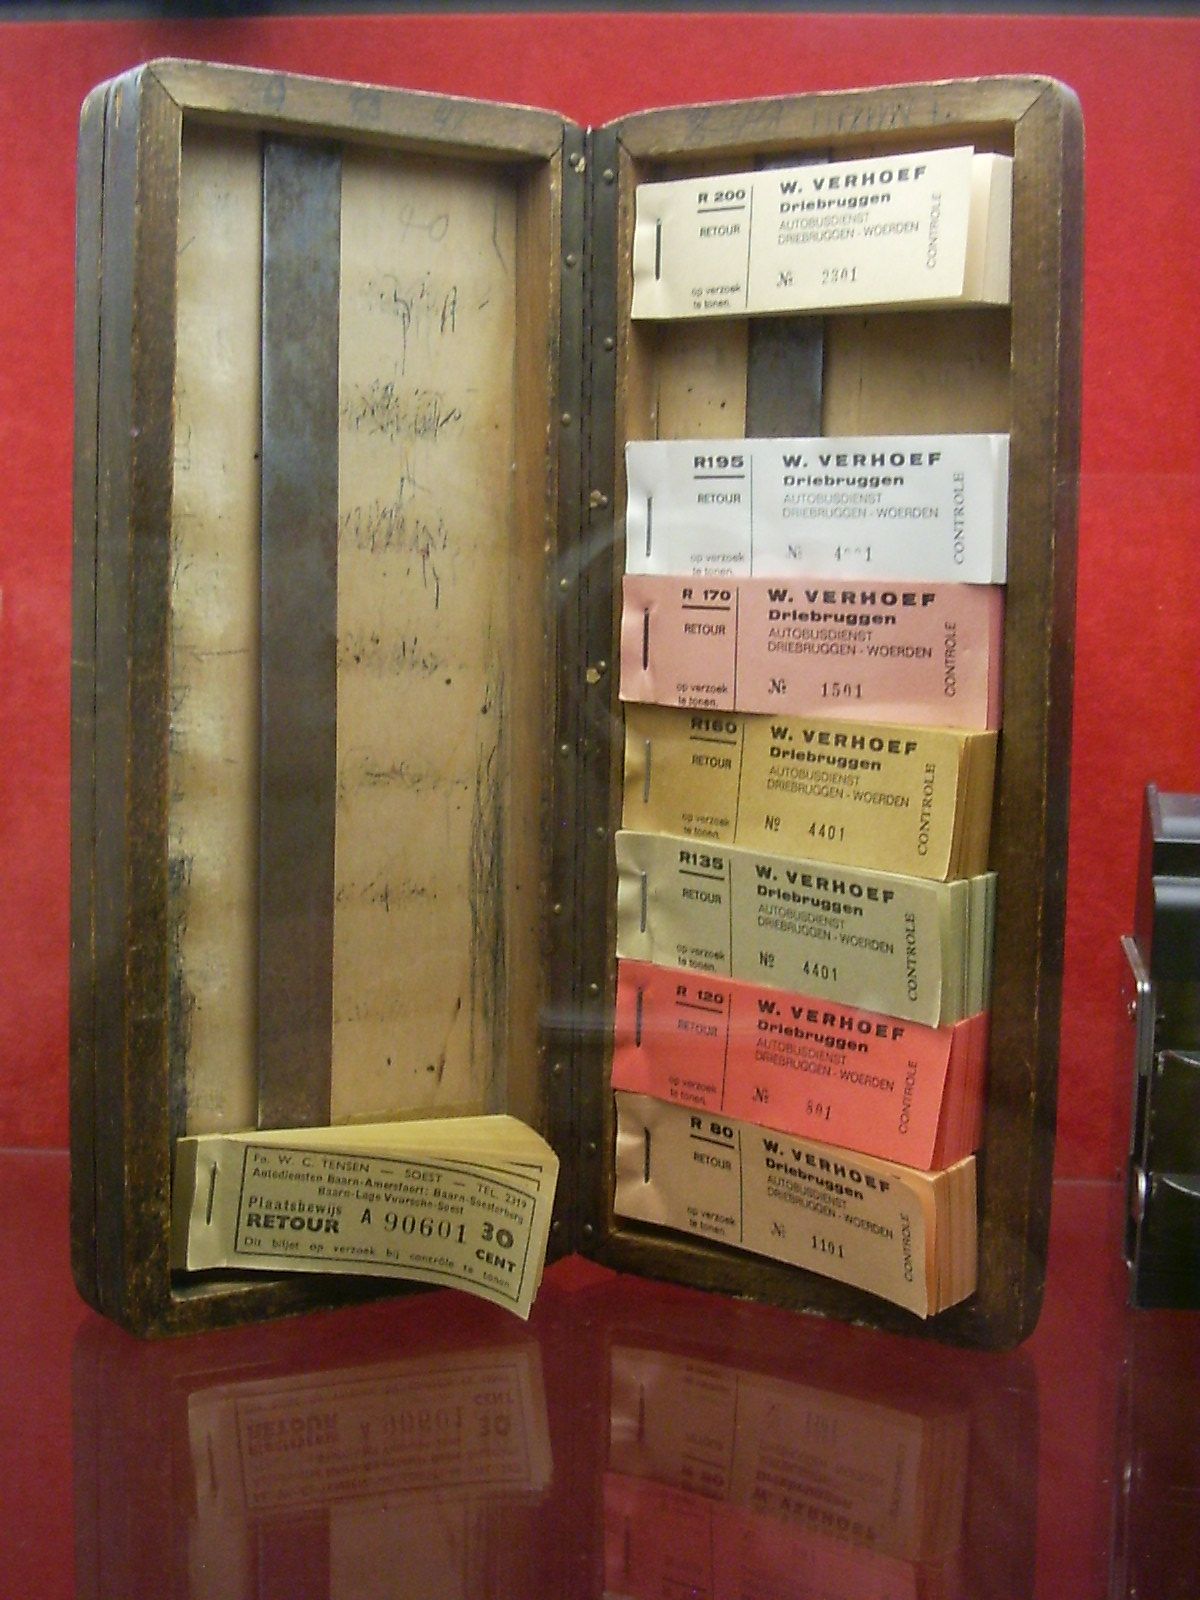 R 200
RETOUR
op verzoek
te tonen.
W. VERHOEF
Driebruggen
AUTOBUSDIENST
DRIEBRUGGEN - WOERDEN
№ 2301
CONTROLE
R195
RETOUR
op verzoek
te tonen.
W. VERHOEF
Driebruggen
AUTOBUSDIENST
DRIEBRUGGEN - WOERDEN
№
CONTROLE
R 170
RETOUR
op verzoek
te tonen.
W. VERHOEF
Driebruggen
AUTOBUSDIENST
DRIEBRUGGEN - WOERDEN
№ 1501
CONTROLE
R160
RETOUR
op verzoek
te tonen.
W. VERHOEF
Driebruggen
AUTOBUSDIENST
DRIEBRUGGEN - WOERDEN
№ 4401
CONTROLE
R135
RETOUR
op verzoek
te tonen.
W. VERHOEF
Driebruggen
AUTOBUSDIENST
DRIEBRUGGEN - WOERDEN
№ 4401
CONTROLE
R 120
RETOUR
op verzoek
te tonen.
W. VERHOEF
Driebruggen
AUTOBUSDIENST
DRIEBRUGGEN - WOERDEN
№ 801
CONTROLE
R 80
RETOUR
op verzoek
te tonen.
W. VERHOEF
Driebruggen
AUTOBUSDIENST
DRIEBRUGGEN - WOERDEN
№ 1101
CONTROLE
Fa. W. C. TENSEN — SOEST — TEL. 2319
Autodiensten Baarn-Amersfoort; Baarn-Soesterberg
Baarn-Lage Vuursche-Soest
Plaatsbewijs
RETOUR A 90601 30 CENT
Dit biljet op verzoek bij contrôle te tonen